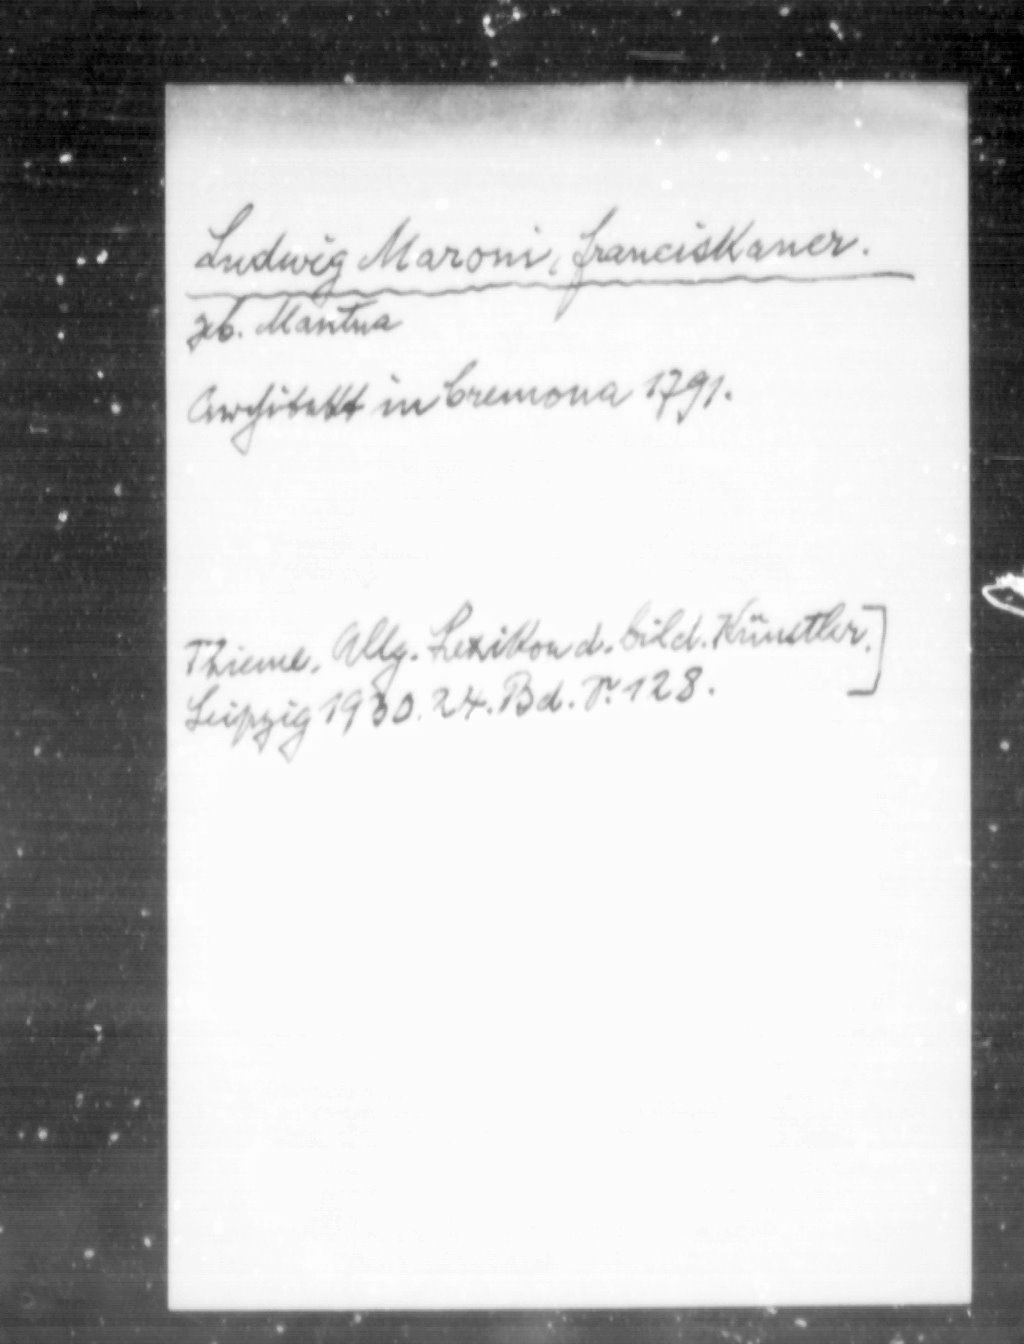 Ludwig Maroni, Franciskaner.
geb. Mantua
Architekt in Cremona 1791.
Thieme. Allg. Lexikon d. bild. Künstler.]
Leipzig 1930. 24. Bd. P. 128.